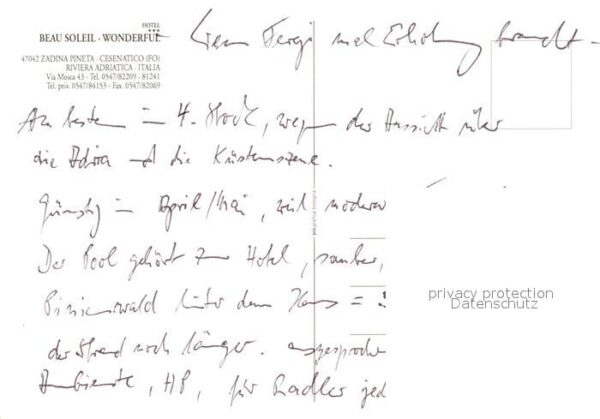 HOTEL
BEAU SOLEIL - WONDERFUL
47042 ZADINA PINETA - CESENATICO (FO)
RIVIERA ADRIATICA - ITALIA
Via Mosca 43 - Tel. 0547/82209 - 81241
Tel. priv. 0547/84153 - Fax. 0547/82069
Wenn Fergi mal Erholung braucht -
Am besten im 4. Stock, wegen der Aussicht über
die Adria und die Küstenszene.
Günstig im April/Mai, weil moderat
Der Pool gehört zum Hotel, sauber,
Pinienwald hinter dem Haus =
der Strand noch länger. ausgesprochen
Ambiente, HP, für Radler jed
privacy protection
Datenschutz